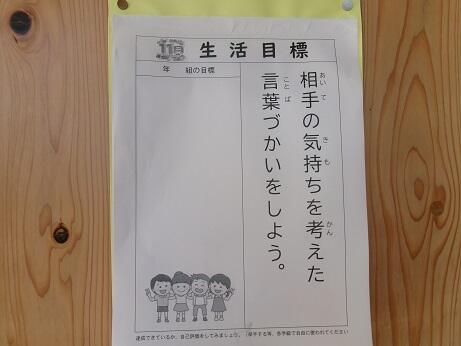 11月
生活目標
年 組の目標
相手の気持ちを考えた
あいて
きも
かん
言葉づかいをしよう。
ことば
達成できているか、自己評価をしてみましょう。（挙手する等、各学級で自由に使われてください